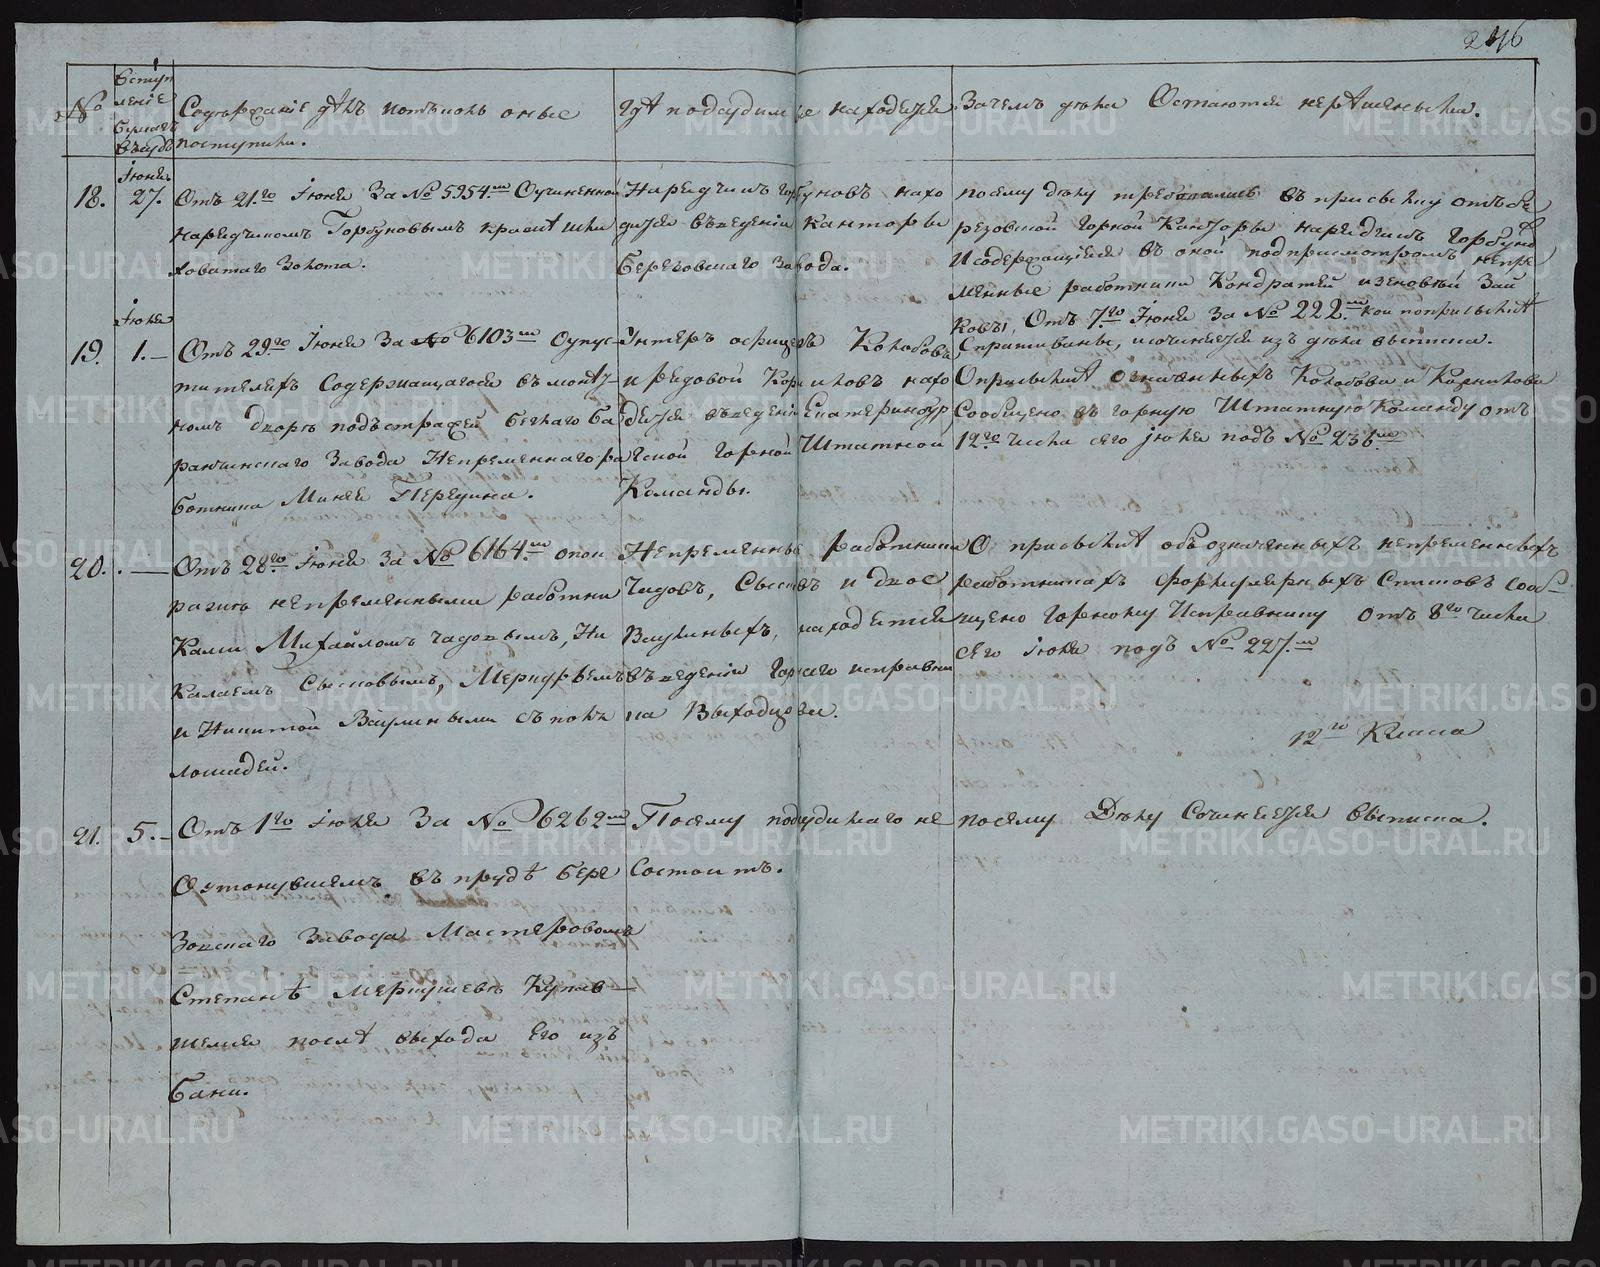 246
№
Вступ
ленiе
бумагъ
въ судъ
Содержанiе дѣлъ потомъ оные
поступили.
Гдѣ подсудимые находятся
Зачемъ дѣла Остаются нерѣшеными.
18.
Iюня
27.
Отъ 21.го Iюня За № 5954.мъ Оучиненной
нарядчикомъ Горбуновымъ кражѣ шли
ховатаго Золота.
Нарядчикъ Горбуновъ нахо
дится въведенiи Канторы
Березовскаго Завода.
посему дѣлу требовались въ присылку отъ бе
резовской Горной Канторы нарядчикъ Горбуно
И содержащiйся въ оной подприсмотромъ непре
менные работники Кондратей Зай
ковъ, Отъ 7.го Iюня За № 222.мъ кои поприсылкѣ
Спрашиваны, исочиняется изъ дѣла выписка.
19.
Iюля
1.—
Отъ 29го Iюня За № 6103мъ Оупус
тителяхъ Содержащагося въ монет
номъ дворѣ подъ стражей беглаго Ба
ранчинскаго Завода Непременнаго ра
ботника Минея Передина.
Унтеръ офицеръ Колобовъ
и рядовой Корниловъ нахо
дятся въведенiи Екатеринбур
гской Горной Штатной
Команды.
Оприсылкѣ означенныхъ Колобова и Корнилова
Сообщено въ горную Штатную Команду отъ
12го числа сего Iюля подъ № 236мъ
20.
. —
Отъ 28го Iюня За № 6164.мъ опок
ражѣ непременными работни
ками Михайломъ Чадовымъ, Ни
калаемъ Сысковымъ, Меркурьемъ
и Никитой Ваулиными съ поля
лошадей.
Непременные работники
Чадовъ, Сысковъ и двое
Ваулиныхъ, находятся
въведенiи Горнаго исправни
ка Выходцова.
О присылкѣ обозначенныхъ непременныхъ
работникахъ Формулярныхъ Списковъ сооб-
щено Горному Исправнику отъ 8го числа
сего Iюля подъ № 227.мъ
12го Класса
21.
5.—
Отъ 1го Iюля За № 6262мъ
Оутонувшемъ въ прудѣ Бере
зовскаго Завода Мастеровомъ
Степанѣ Меркушевѣ Купав—
шемся послѣ выхода Его изъ
бани.
Посему подсудимаго не
Состоитъ.
посему Дѣлу Сочиняется выписка.
METRIKI.GASO-URAL.RU